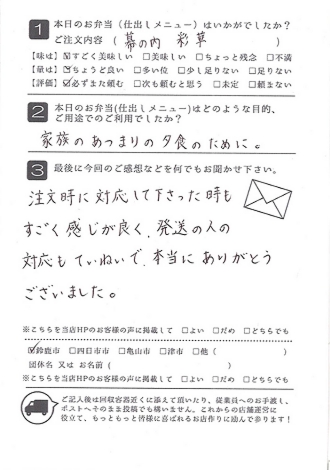 1 本日のお弁当（仕出しメニュー）はいかがでしたか？
ご注文内容（ 幕の内 彩草 ）
【味は】☑すごく美味しい □美味しい □ちょっと残念 □不満
【量は】☑ちょうど良い □多い位 □少し足りない □足りない
【評価】☑必ずまた頼む □次も頼むと思う □未定 □頼まない
2 本日のお弁当(仕出しメニュー)はどのような目的、
ご用途でのご利用でしたか？
家族のあつまりの夕食のために。
3 最後に今回のご感想などを何でもお聞かせ下さい。
注文時に対応して下さった時も
すごく感じが良く、発送の人の
対応もていねいで、本当にありがとう
ございました。
※こちらを当店HPのお客様の声に掲載して □よい □だめ □どちらでも
☑鈴鹿市 □四日市市 □亀山市 □津市 □他（ ）
団体名 又は お名前（ ）
※こちらを当店HPのお客様の声に掲載して □よい □だめ □どちらでも
ご記入後は回収容器近くに添えて頂いたり、従業員へのお手渡し、
ポストへそのまま投稿でも構いません。これからの店舗運営に
役立て、もっともっと皆様に喜ばれるお店作りに励んで参ります！